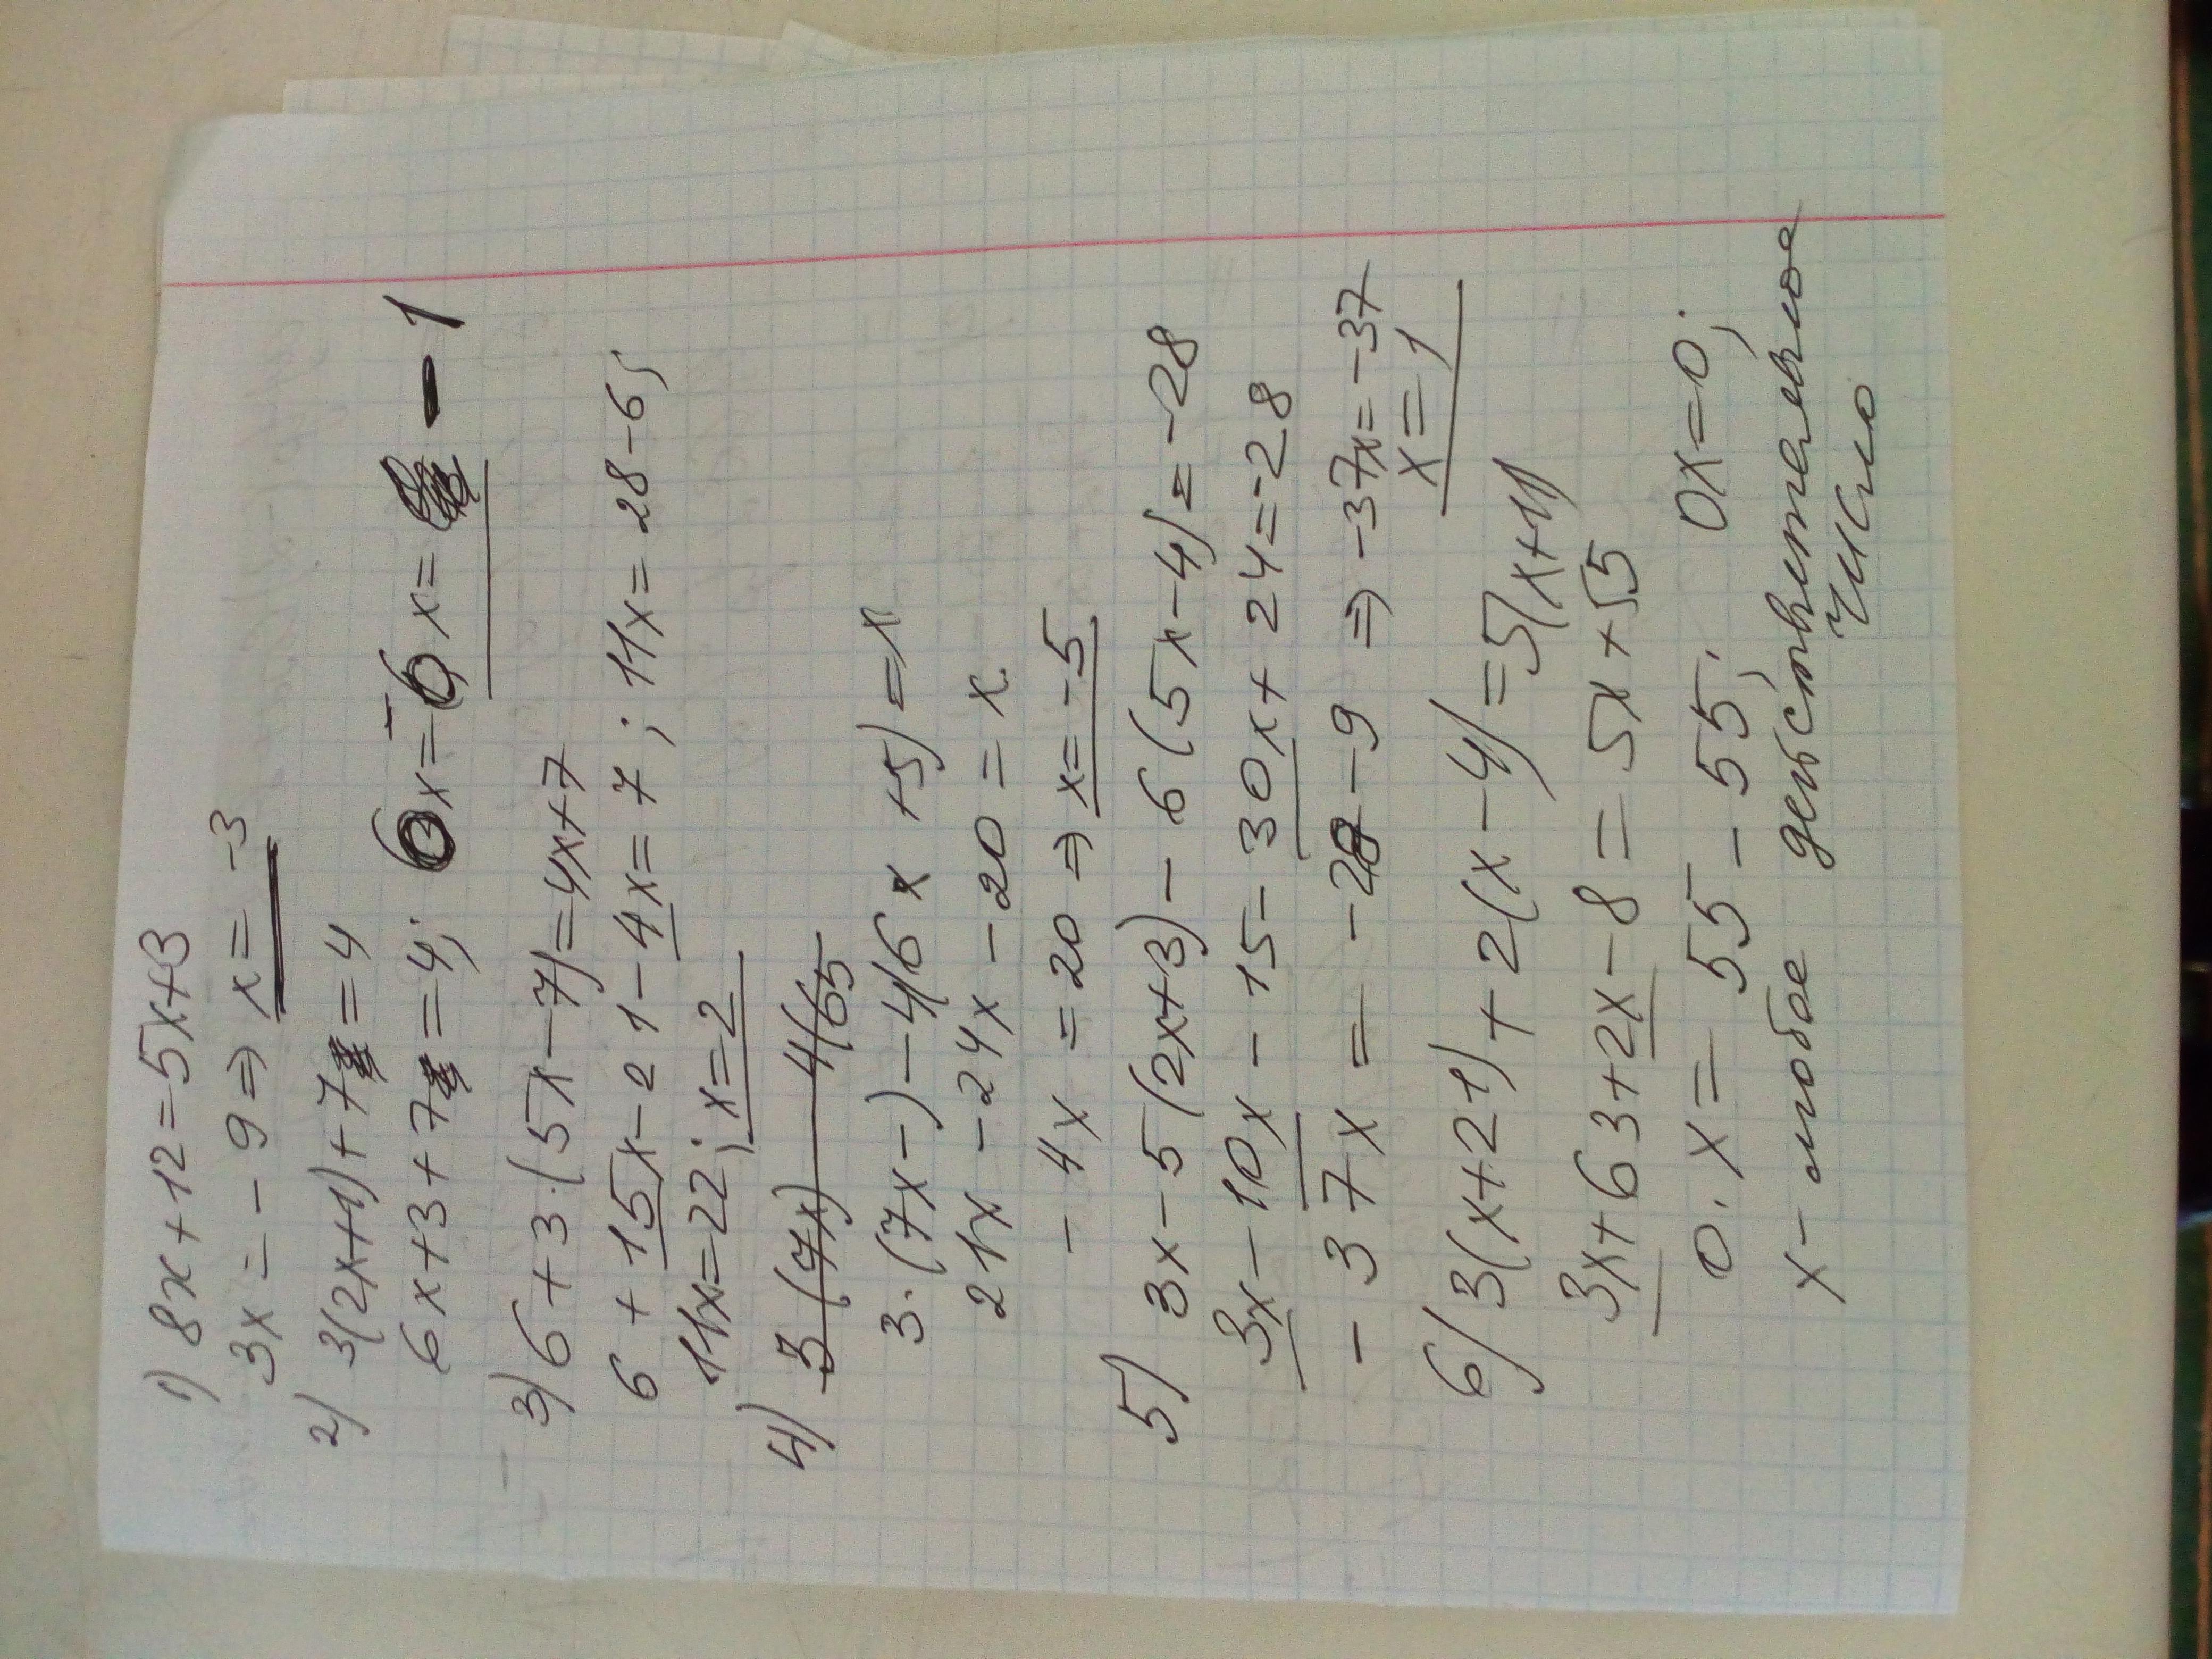 1) 8x+12=5x+3
3x=-9⇒ x=-3
2) 3(2x+1)+7=4
6x+3+7=4; 6x=-6 x= -1
3) 6+3·(5x-7)=4x+7
6+15x-21-4x=7; 11x=28-6;
11x=22; x=2
4) 3(7x) 4(65
3·(7x-)-4(6x+5)=x
21x-24x-20=x
-4x=20⇒x=-5
5) 3x-5(2x+3)-6(5x-4)=-28
3x-10x-15-30x+24=-28
-37x=-28-9 ⇒ -37x=-37
x=1
6) 3(x+21)+2(x-4)=5(x+11)
3x+63+2x-8=5x+55
0·x=55-55; 0x=0;
x-любое действительное
число